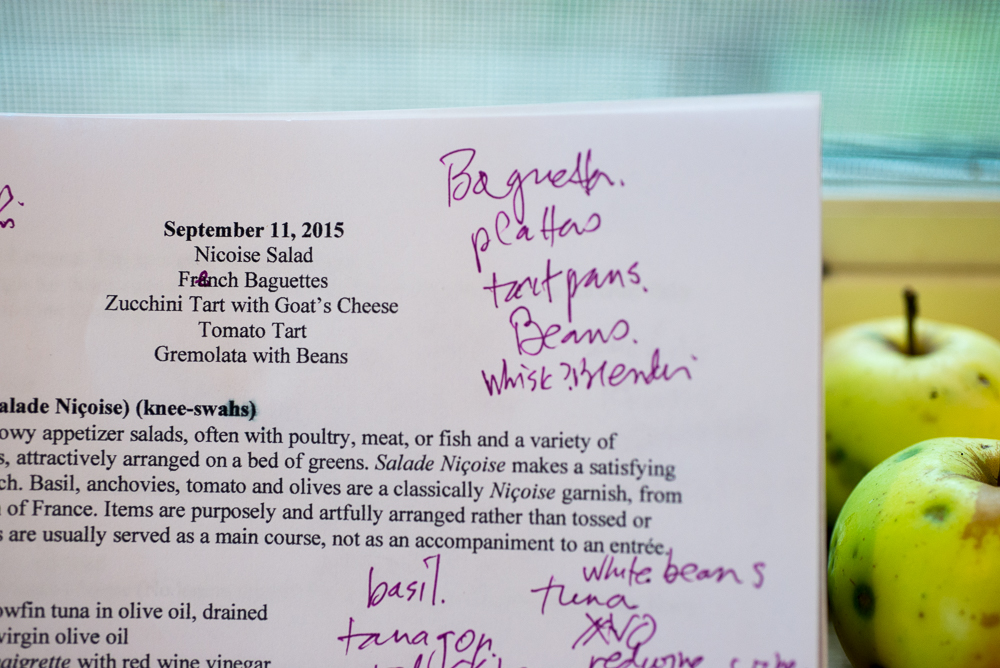 September 11, 2015
Nicoise Salad
French Baguettes
Zucchini Tart with Goat's Cheese
Tomato Tart
Gremolata with Beans
platters
tart pans.
Beans.
whisk?
alade Niçoise) (knee-swahs)
owy appetizer salads, often with poultry, meat, or fish and a variety of
s, attractively arranged on a bed of greens. Salade Niçoise makes a satisfying
ch. Basil, anchovies, tomato and olives are a classically Niçoise garnish, from
of France. Items are purposely and artfully arranged rather than tossed or
s are usually served as a main course, not as an accompaniment to an entrée.
basil.
white beans
tuna
owfin tuna in olive oil, drained
virgin olive oil
XVO
aigrette with red wine vinegar